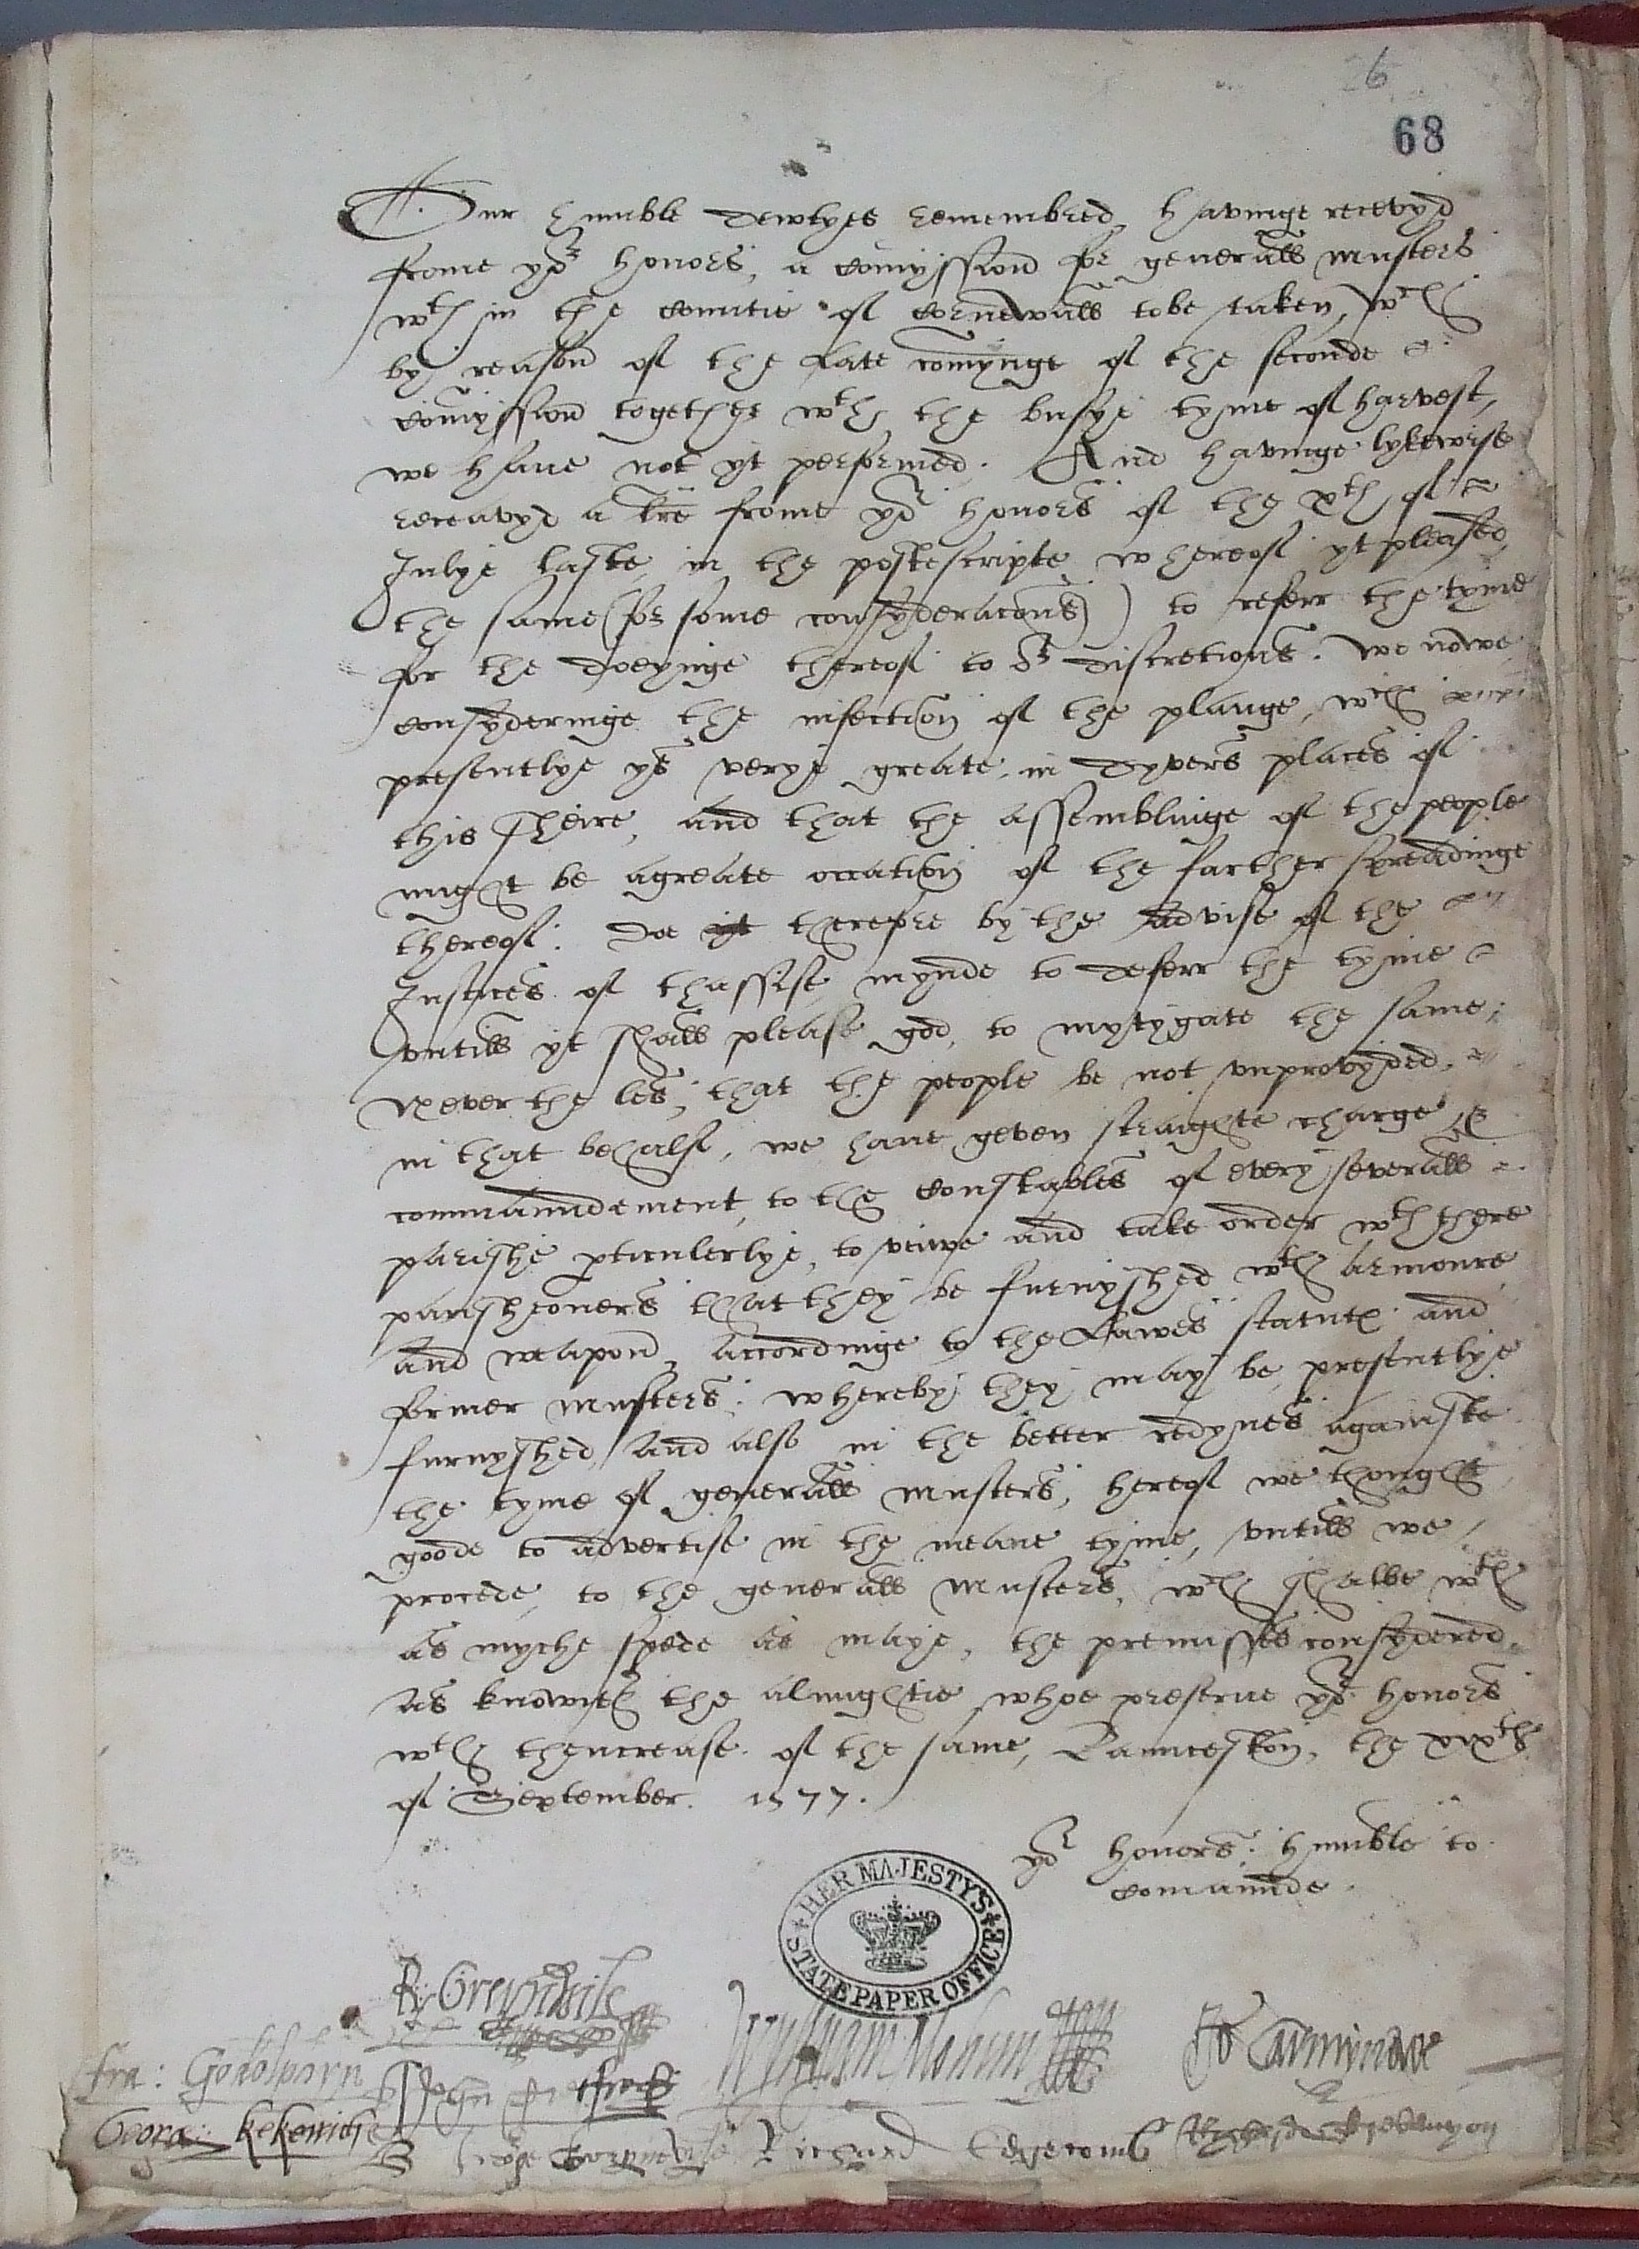 26
68
Our humble dewtyes remembred, havinge recevyd
frome yor honors, a comyssion for generall musters
wth in the countie of Cornewall to be taken, wch
by reason of the late comynge of the seconde
comyssion together wth the busye tyme of harvest,
we have not yt performed. And havinge lykewise
receavyd a lre frome yor honors of the xth of
Julye laste, in the postescripte whereof yt pleased
the same (for some consyderacons) to referr the tyme
for the doeynge thereof to or discretions. We nowe
consyderinge the infection of the plauge, wch
presentlye ys verye greate in dyvers places of
this sheire, and that the assemblinge of the people
might be agreate occation of the farther spreadinge
thereof: doe yt therefore by the advise of the
Justices of thassise mynde to deferr the tyme
untill yt shall please god, to mytygate the same;
Never the les, that the people be not unprovyded
in that behalf, we have geven straighte charge &
commaundement, to the constables of every severall
parishe pticulerlye, to viewe and take order wth there
parisheoners that they be furnyshed wth armoure
and weapon, accordinge to the lawes statute and
former musters: whereby they may be presentlye
furnyshed and also in the better redynes againste
the tyme of generall musters, hereof we thought
goode to advertise in the meane tyme, untill we
procede, to the generall musters, wch shalbe wth
as myche spede as maye, the premisses consydered.
As knowith the almightie, whoe preserve yor honors
wth thencrease of the same, Launceston, the xixth
of September. 1577.
yor honors: humble to
comaunde.
HER MAJESTY'S
STATE PAPER OFFICE
R Greynvile
William Mohun
Jo Carmynowe
fra: Godolphyn
George kekewiche
Richard Edgecomb